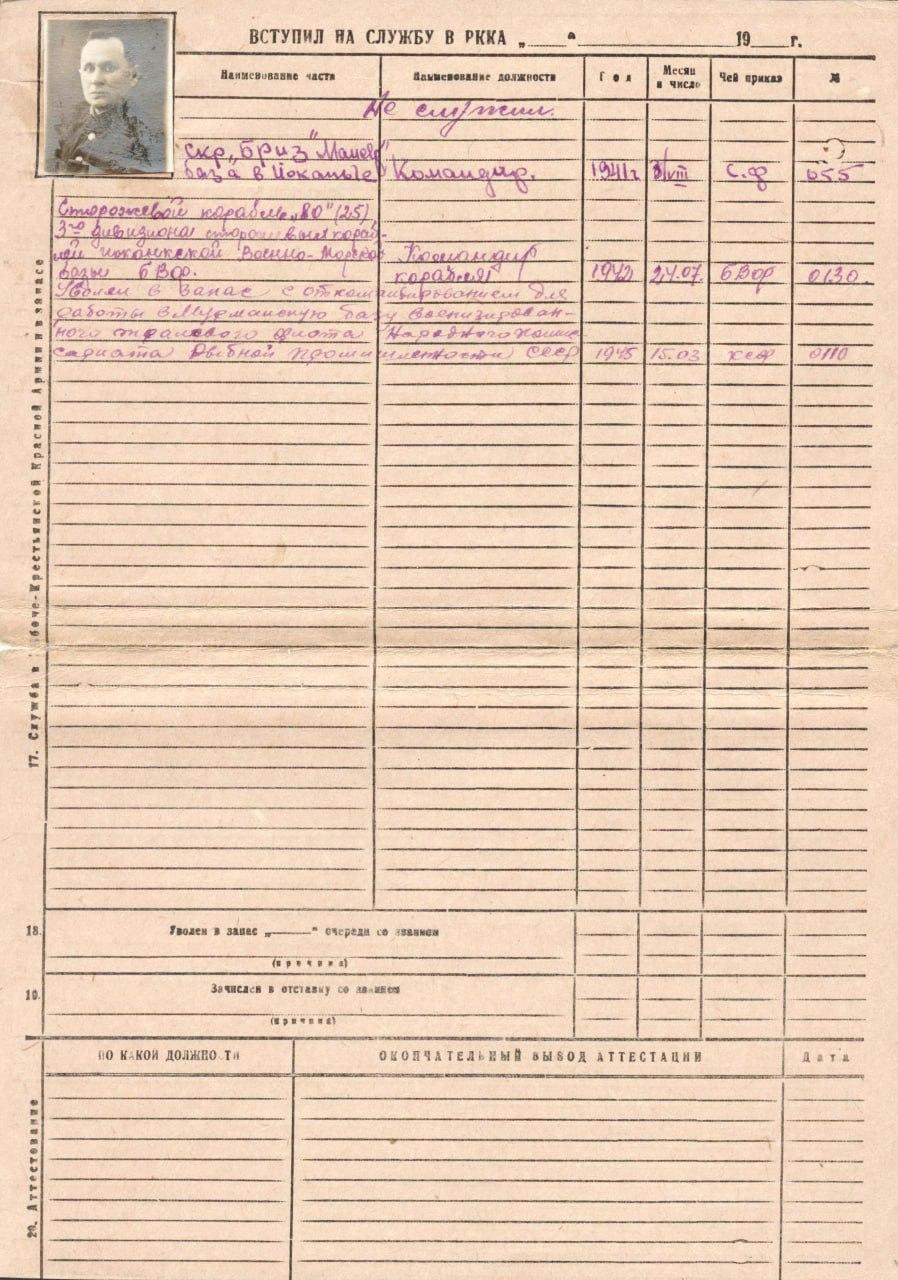 ВСТУПИЛ НА СЛУЖБУ В РККА „ “ 19 г.
Наименование части Наименование должности Год Месяц и число Чей приказ №
Не служил.
скр. „Бриз" Манев.
база в Йоканьге Командир. 1941г 3/VIII С.Ф 655
Сторожевой корабль „80" (25)
3го дивизиона сторожевых кораб-
лей Иоканкской Военно-Морской Командир
базы БВФ. корабля 1942 24.07. БВФ 0130.
Уволен в запас с откомандированием для
работы в Мурманскую базу Военизирован-
ного тралового флота Народного комис
сариата Рыбной промышленности СССР 1945 15.03 КСФ 0110
17. Служба в Рабоче-Крестьянской Красной Армии и в запасе
18. Уволен в запас „ “ очереди со званием
(причина)
19. Зачислен в отставку со званием
(причина)
ПО КАКОЙ ДОЛЖНОСТИ ОКОНЧАТЕЛЬНЫЙ ВЫВОД АТТЕСТАЦИИ Дата
20. Аттестование